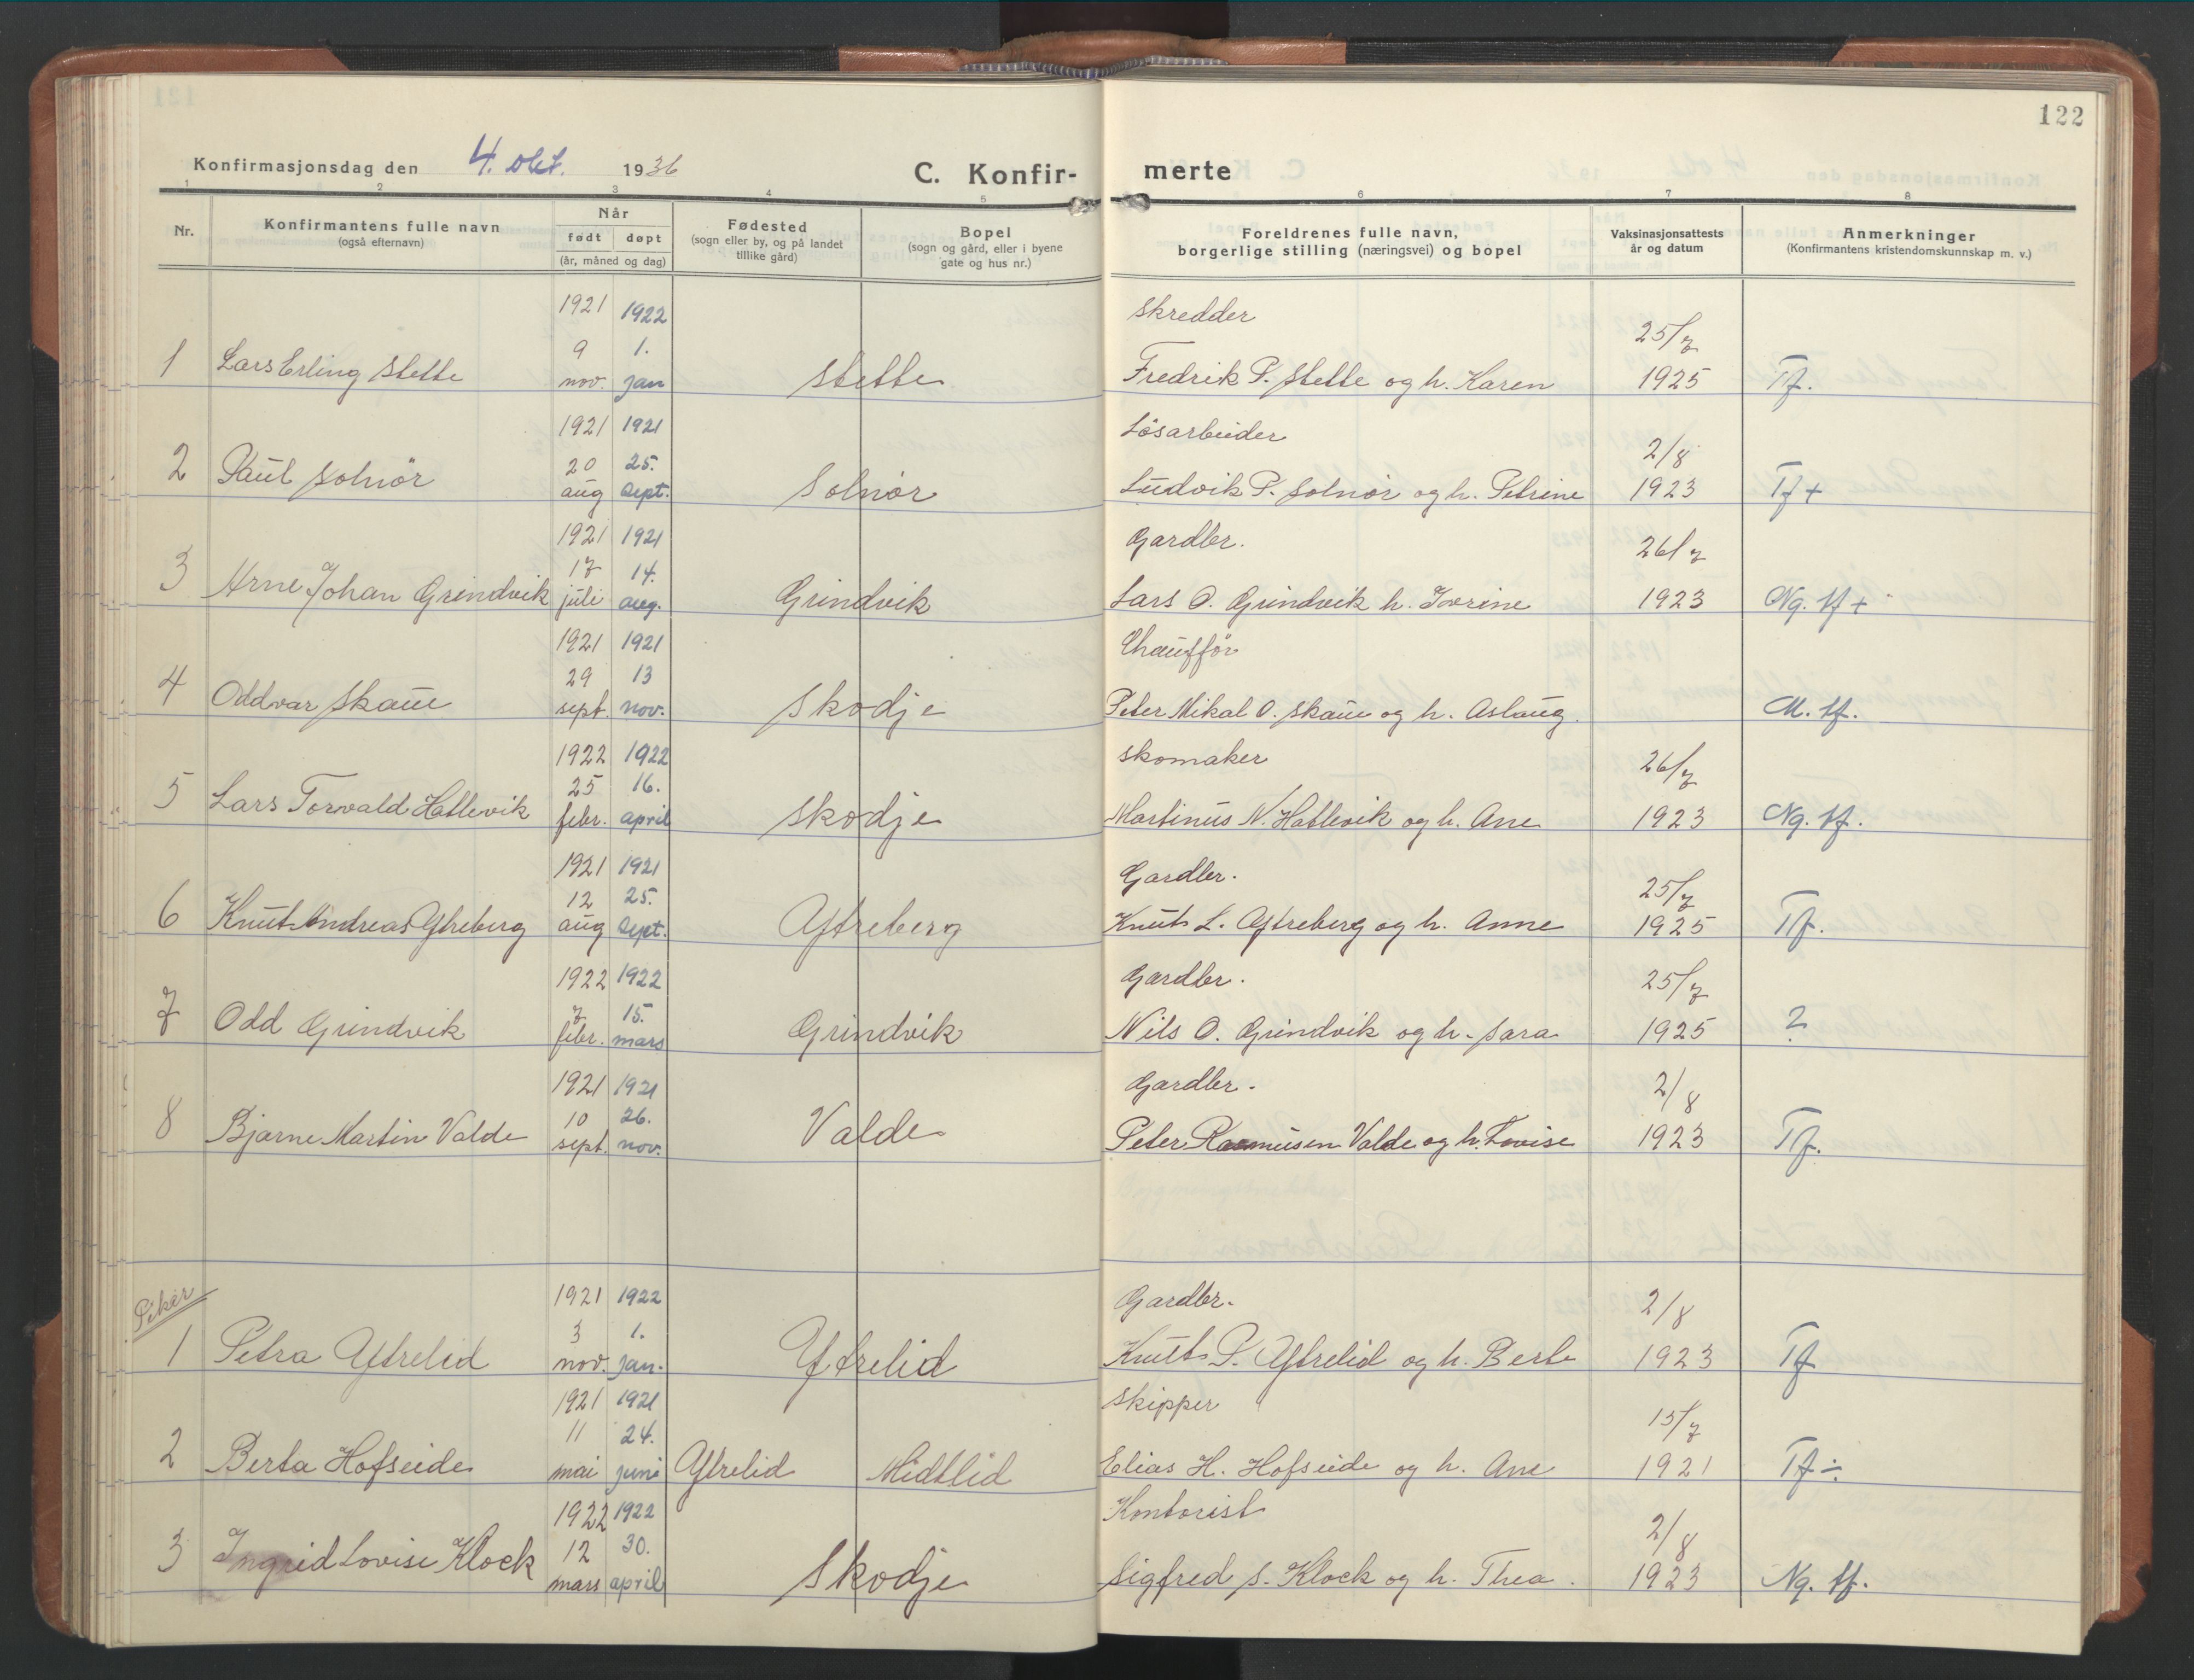 122
Konfirmasjonsdag den 4. okt. 1936
C. Konfir- merte
1 2 3 4 5 6 7 8
Nr.
Konfirmantens fulle navn
(også efternavn)
Når
født døpt
(år, måned og dag)
Fødested
(sogn eller by, og på landet
tillike gård)
Bopel
(sogn og gård, eller i byene
gate og hus nr.)
Foreldrenes fulle navn,
borgerlige stilling (næringsvei) og bopel
Vaksinasjonsattests
år og datum
Anmerkninger
(Konfirmantens kristendomskunnskap m. v.)
1921 1922 Skredder 25/7
9 1.
1 Lars Erling Stette nov. jan Stette Fredrik P. Stette og h. Karen 1925 Tf.
1921 1921 Løsarbeider 2/8
20 25.
2 Paul Solnör aug sept. Solnör Ludvik P. Solnör og h. Petrine 1923 Tf +
1921 1921 Gardbr. 26/7
17 14.
3 Arne Johan Grindvik juli aug. Grindvik Lars O. Grindvik h. Iverine 1923 Ng. tf +
1921 1921 Chauffør
29 13
4 Oddvar Skaue sept. nov. Skodje Peter Mikal O. Skaue og h. Aslaug. M. tf.
1922 1922 Skomaker 26/7
25 16.
5 Lars Torvald Hatlevik febr. april Skodje Martinus N. Hatlevik og h. Ane 1923 Ng. tf.
1921 1921 Gardbr. 25/7
12 25.
6 Knut Andreas Ytreberg aug sept. Ytreberg Knut L. Ytreberg og h. Anne 1925 Tf.
1922 1922 Gardbr. 25/7
7 15.
7 Odd Grindvik febr. mars Grindvik Nils O. Grindvik og h. Sara 1925 ?
1921 1921 Gardbr. 2/8
10 26.
8 Bjarne Martin Valde sept. nov. Valde Peter Rasmusen Valde og h. Lovise 1923 Tf.
Piker
1921 1922 Gardbr. 2/8
3 1.
1 Petra Ytrelid nov. jan. Ytrelid Knut P. Ytrelid og h. Berte 1923 Tf
1921 1921 Skipper 15/7
11 24.
2 Berta Hofseide mai juni Ytrelid Midtlid Elias H. Hofseide og h. Ane 1921 Tf ÷
1922 1922 Kontorist 2/8
12 30.
3 Ingrid Lovise Klock mars april Skodje Sigfred S. Klock og h. Thea. 1923 Ng. tf.